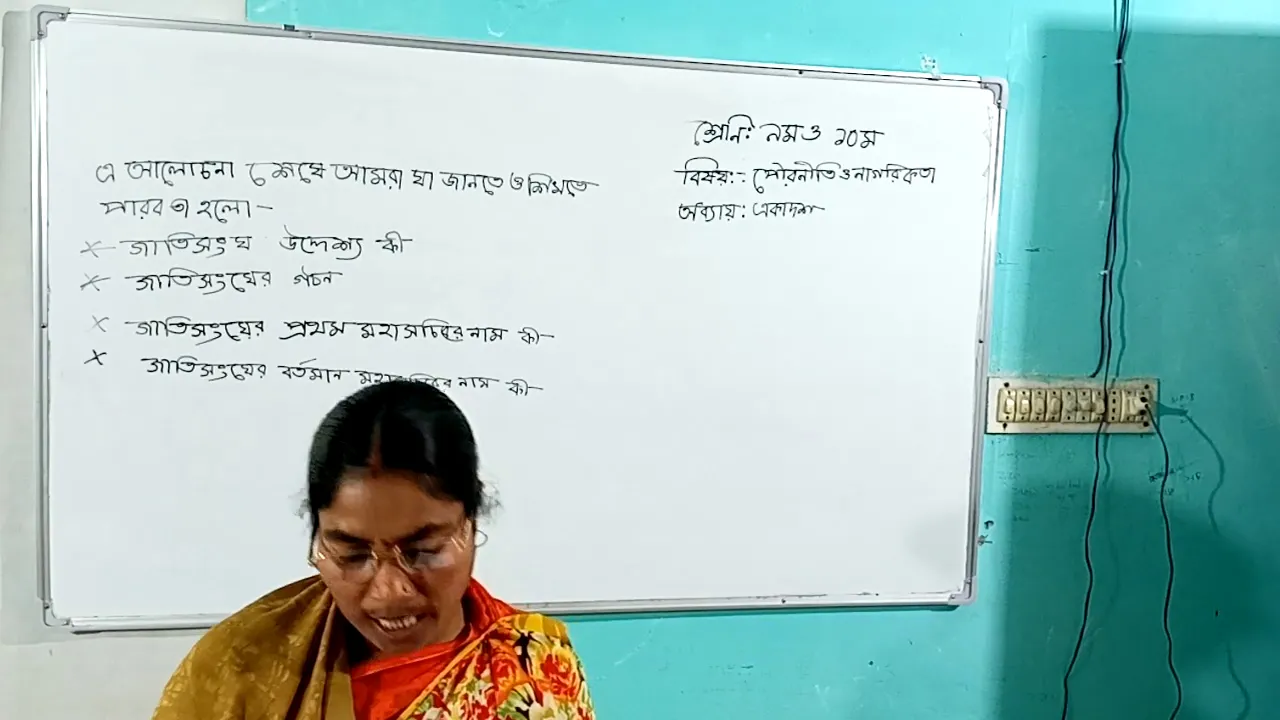 শ্রেনিঃ নম ও ১০ম
বিষয়ঃ- পৌরনীতি ও নাগরিকতা
অধ্যায়ঃ একাদশ
এ আলোচনা শেষে আমরা যা জানতে ও শিখতে
পারব তা হলো -
× জাতিসংঘ উদ্দেশ্য কী
× জাতিসংঘের গঠন
× জাতিসংঘের প্রথম মহাসচিবের নাম কী
× জাতিসংঘের বর্তমান নাম কী